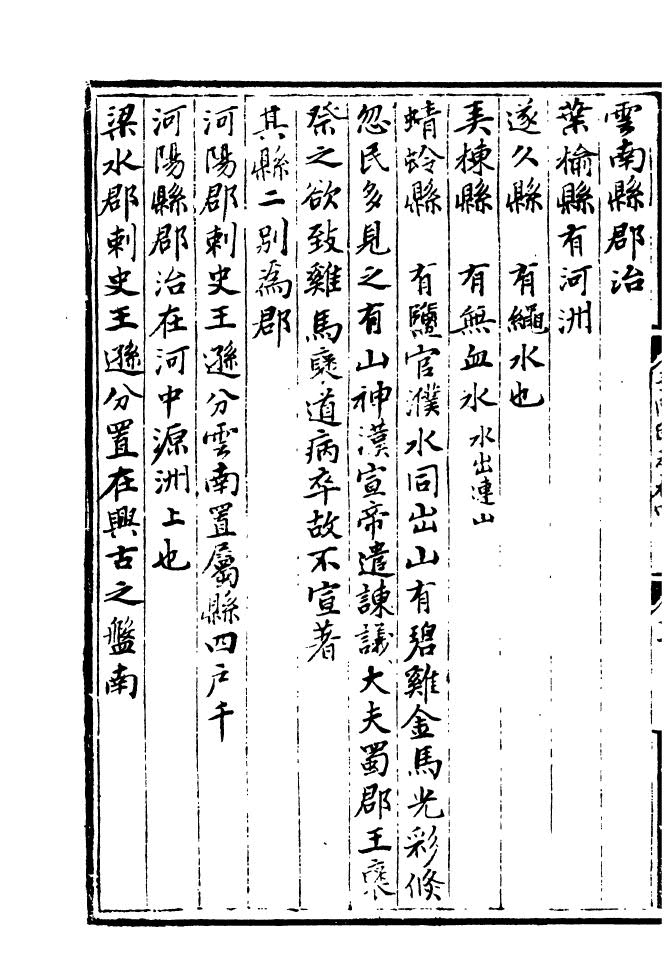 雲南縣郡治
葉榆縣有河洲
遂久縣　有繩水也
美棟縣　有無血水水出連山
蜻蛉縣　有鹽官濮水同出山有碧雞金馬光彩倏
忽民多見之有山神漢宣帝遣諫議大夫蜀郡王褒
祭之欲致雞馬褒道病卒故不宣著
其縣二別爲郡
河陽郡刺史王遜分雲南置屬縣四戶千
河陽縣郡治在河中源洲上也
梁水郡刺史王遜分置在興古之盤南